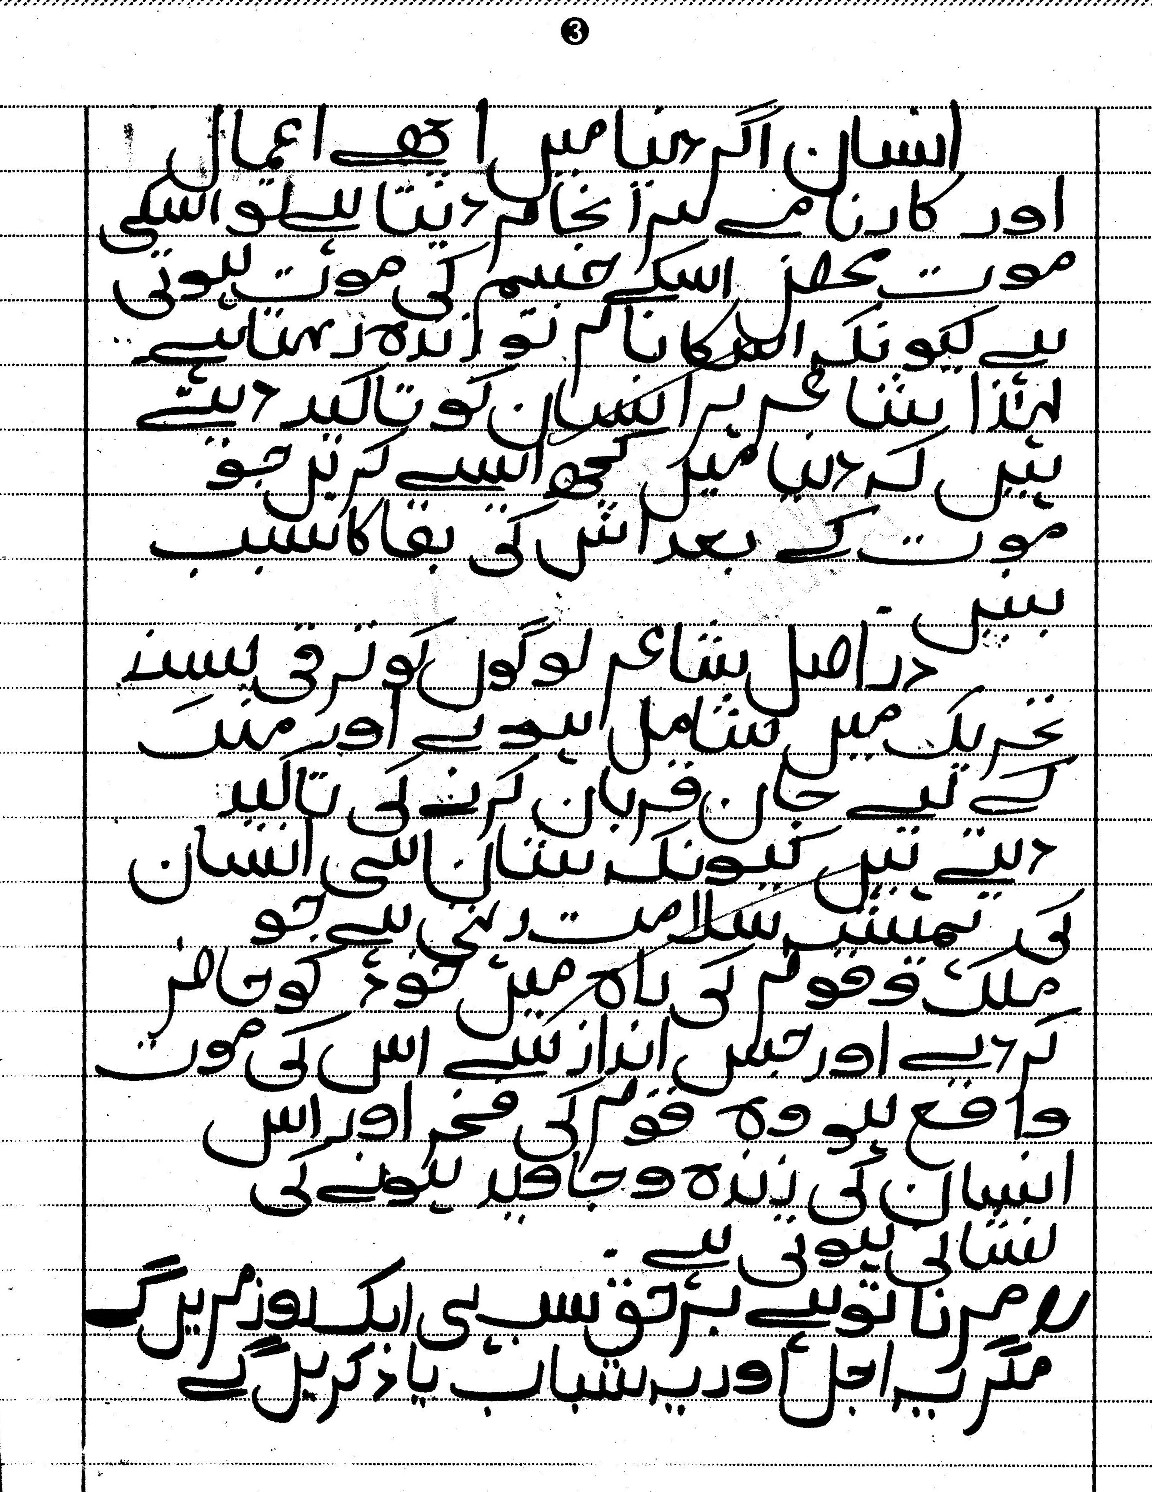 3
انسان اگر دنیا میں اچھے اعمال
اور کارنامے سرانجام دیتا ہے تو اسکی
موت محض اسکے جسم کی موت ہوتی
ہے کیونکہ اسکا نام تو زندہ رہتا ہے
لہٰذا شاعر ہر انسان کو تاکید دیتے
ہیں کہ دنیا میں کچھ ایسے کریں جو
موت کے بعد اس کی بقا کا سبب
بنیں ۔
دراصل شاعر لوگوں کو ترقی پسند
تحریک میں شامل ہوۓ اور
کے لیے جان قربان کرنے کی تاکید
دیتے ہیں کیونکہ شان اسی انسان
کی ہمیشہ سلامت رہتی ہے جو
ملک و قوم کی راہ میں خود کو حاضر
کر دے اور جس انداز سے اس کی موت
واقع ہو وہ قوم کی فخر اور اس
انسان کی زندہ و جاوید ہونے کی
نشانی ہوتی ہے ۔
مرنا تو ہے برحق سب ہی ایک روز مریں گے
مگر یہ اجل اور یہ شباب یاد کریں گے